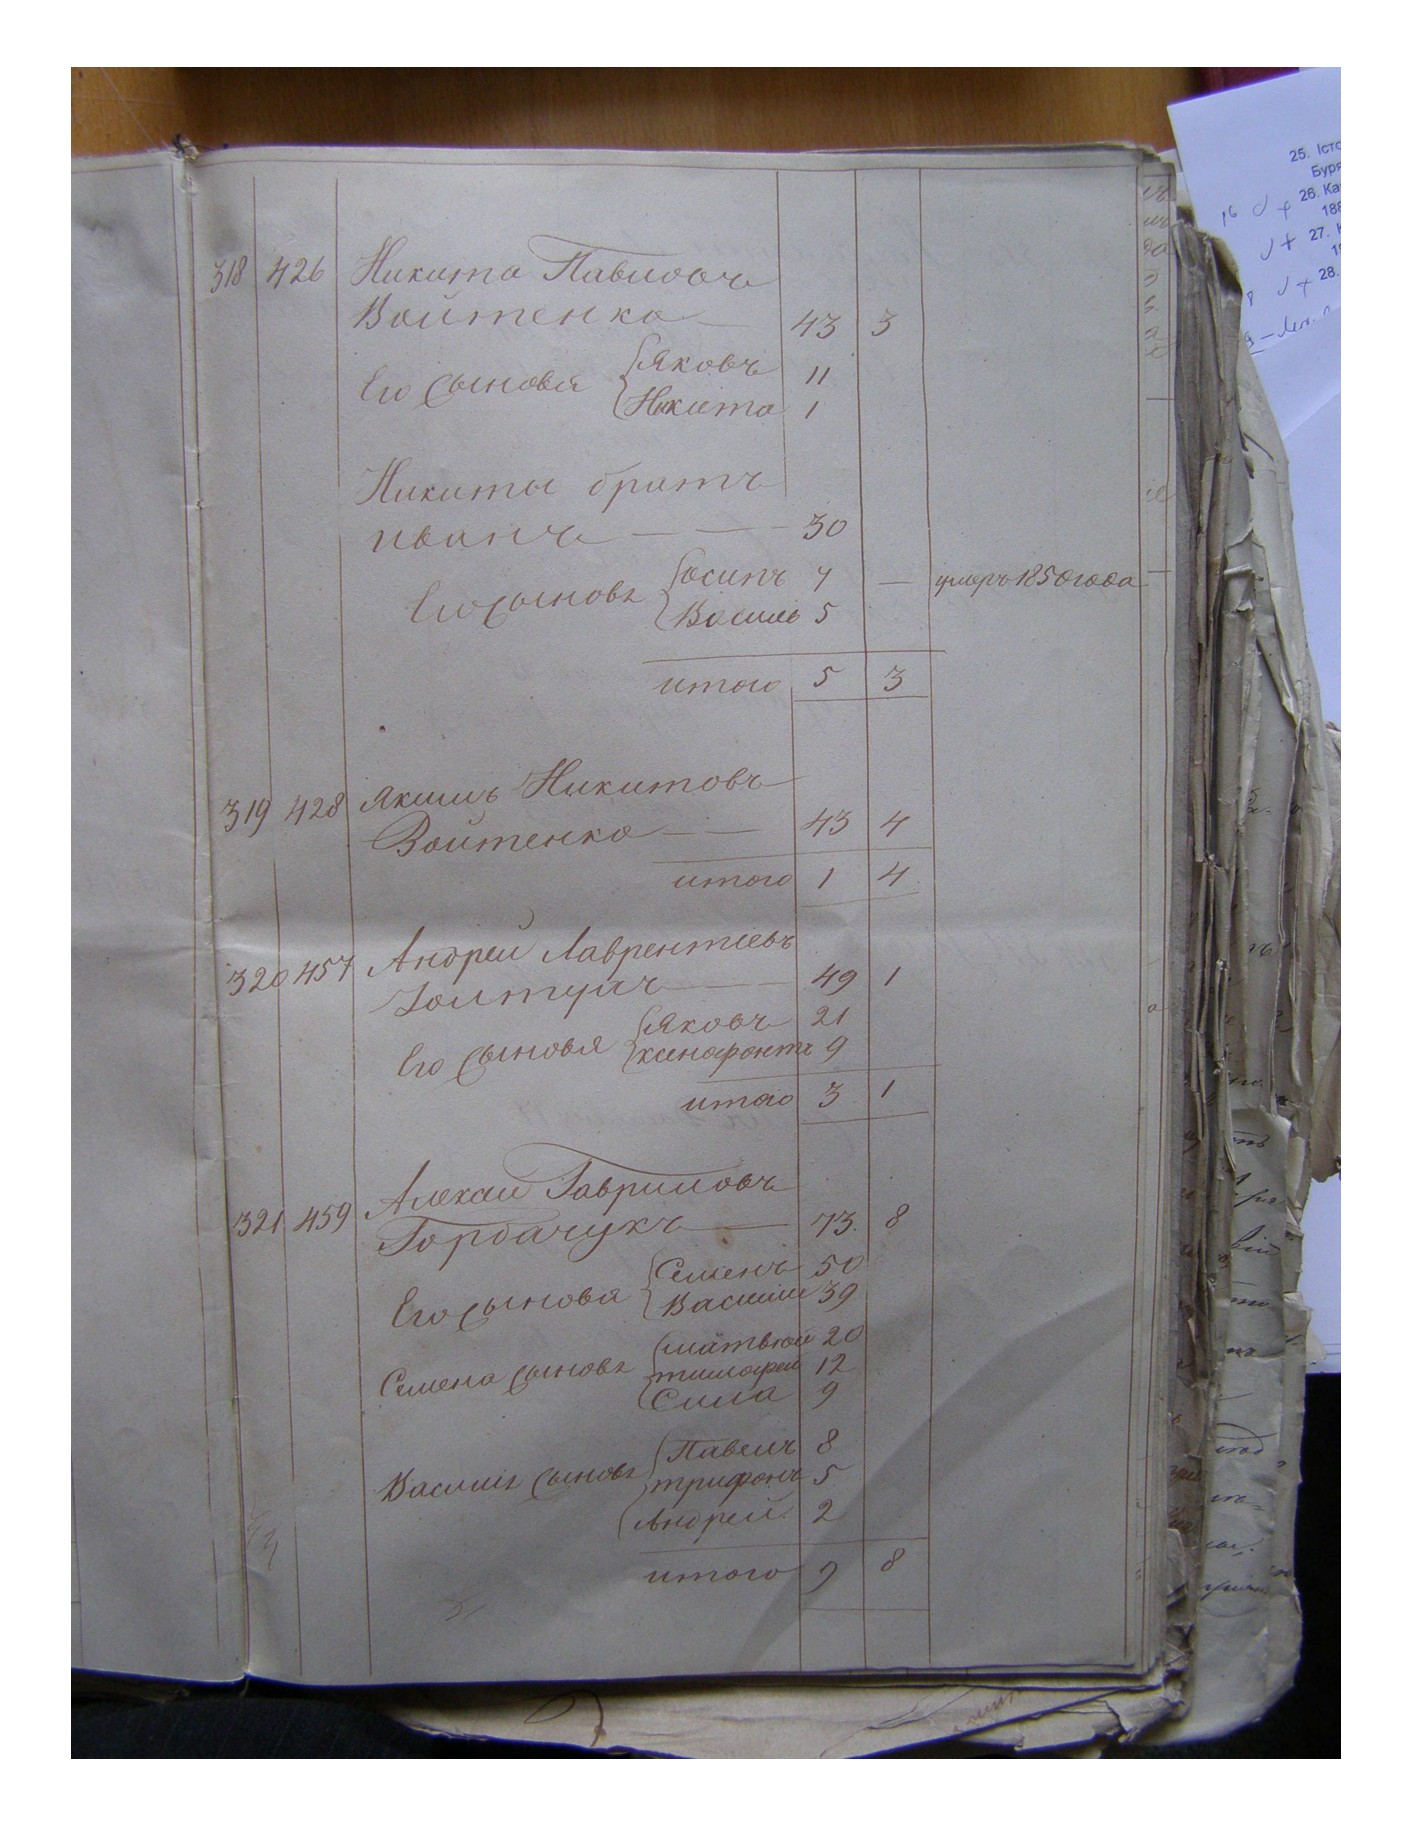 318 426 Никита Павловъ
Войтенко 43 3
Его сыновья Яковъ 11
Никита 1
Никиты братъ
иванъ 30
Его сыновя осипъ 4 — умеръ 1850 года
Василь 5
итого 5 3
319 428 Якимъ Никитовъ
Войтенко 43 4
итого 1 4
320 457 Андрей Лаврентіевъ
49 1
Его сыновья Яковъ 21
ксенофонтъ 9
итого 3 1
321 459 Алексей Гавриловъ
Горбачукъ 73. 8
Его сыновья Семенъ 50
Василий 39
Семена сыновя матвюй 20
тимофей 12
Сила 9
Василия сыновя Павелъ 8
трифонъ 5
Андрей 2
итого 9 8
25. Істо
Буря
26. Ка
188
27.
28.